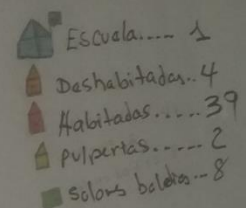 Escuela..... 1
Deshabitadas.. 4
Habitadas...... 39
Pulperias...... 2
Solares baldios -- 8